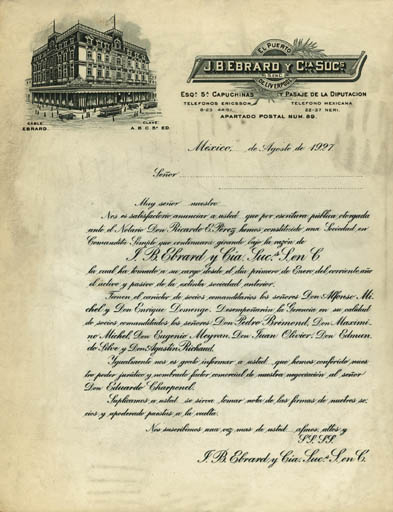 CABLE
EBRARD.
CLAVE:
A. B. C. 5ª ED.
EL PUERTO
J. B. EBRARD Y CIA. SUCS.
S. EN C.
DE LIVERPOOL
ESQª 5ª CAPUCHINAS Y PASAJE DE LA DIPUTACION
TELEFONOS ERICSSON,
TELEFONO MEXICANA
22-27 NERI.
APARTADO POSTAL NUM. 89.
México, de Agosto de 1927
Señor
Muy señor nuestro
Nos es satisfactorio anunciar a usted que por escritura pública otorgada
ante el Notario Don Ricardo E. Pérez hemos constituido una Sociedad en
Comandita Simple que continuará girando bajo la razón de
J. B. Ebrard y Cía. Sucs. S. en C.
la cual ha tomado a su cargo desde el día primero de Enero del corriente año
el activo y pasivo de la extinta sociedad anterior.
Tienen el carácter de socios comanditarios los señores Don Alfonso Mi-
chel y Don Enrique Donenge. Desempeñarán la Gerencia en su calidad
de socios comanditados los señores: Don Pedro Bremond, Don Maximi-
no Michel, Don Eugenio Meyran, Don Juan Olivier, Don Edmun-
do Silve y Don Agustín Richaud.
Igualmente nos es grato informar a usted que hemos conferido nues-
tro poder jurídico y nombrado factor comercial de nuestra negociación al señor
Don Eduardo Chaponel.
Suplicamos a usted se sirva tomar nota de las firmas de nuestros so-
cios y apoderado puestas a la vuelta.
Nos suscribimos una vez mas de usted afmos. attos. y
SS. SS.
J. B. Ebrard y Cía. Sucs. S. en C.